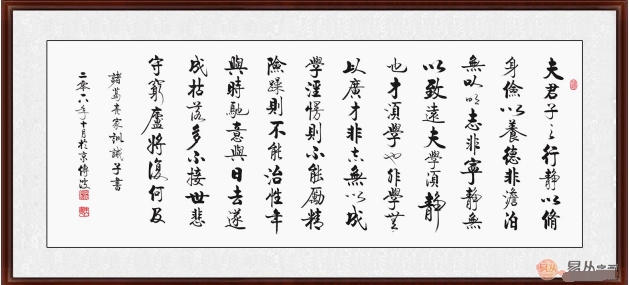 夫君子之行静以脩
身儉以養德非澹泊
無以明志非寧静無
以致遠夫學須静
也才須學也非學無
以廣才非志無以成
學淫慢則不能勵精
險躁則不能治性年
與時馳意與日去遂
成枯落多不接世悲
守窮廬將復何及
諸葛亮家訓誡子書
二零一八年十月於京傅波
易从字画